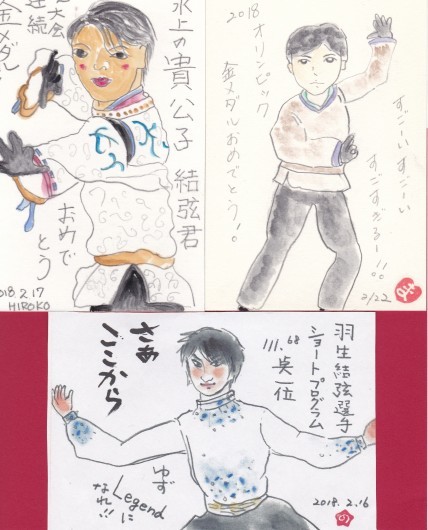 氷上の貴公子 結弦君
大会
連続
金メダル
おめで
とう
2018.2.17
HIROKO
2018
オリンピック
金メダルおめでとう!
すごーいすごーい
すごすぎるー!!
2/22
羽生結弦選手
ショートプログラム
111.68
点一位
さあ
ここから
ゆず
Legendに
なれ!!
2018.2.16